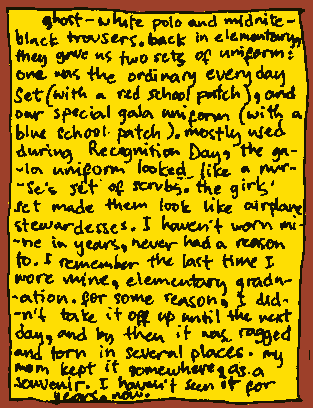 ghost-white polo and midnite-
black trousers. back in elementary,
they gave us two sets of uniform:
one was the ordinary everyday
set (with a red school patch), and
our special gala uniform (with a
blue school patch). mostly used
during Recognition Day, the ga-
-la uniform looked like a nur-
-se's set of scrubs. the girls'
set made them look like airplane
stewardesses. I haven't worn mi-
-ne in years, never had a reason
to. I remember the last time I
wore mine, elementary gradu-
-ation. for some reason, I did-
-n't take it off up until the next
day, and by then it was ragged
and torn in several places. my
mom kept it somewhere, as a
souvenir. I haven't seen it for
years now.